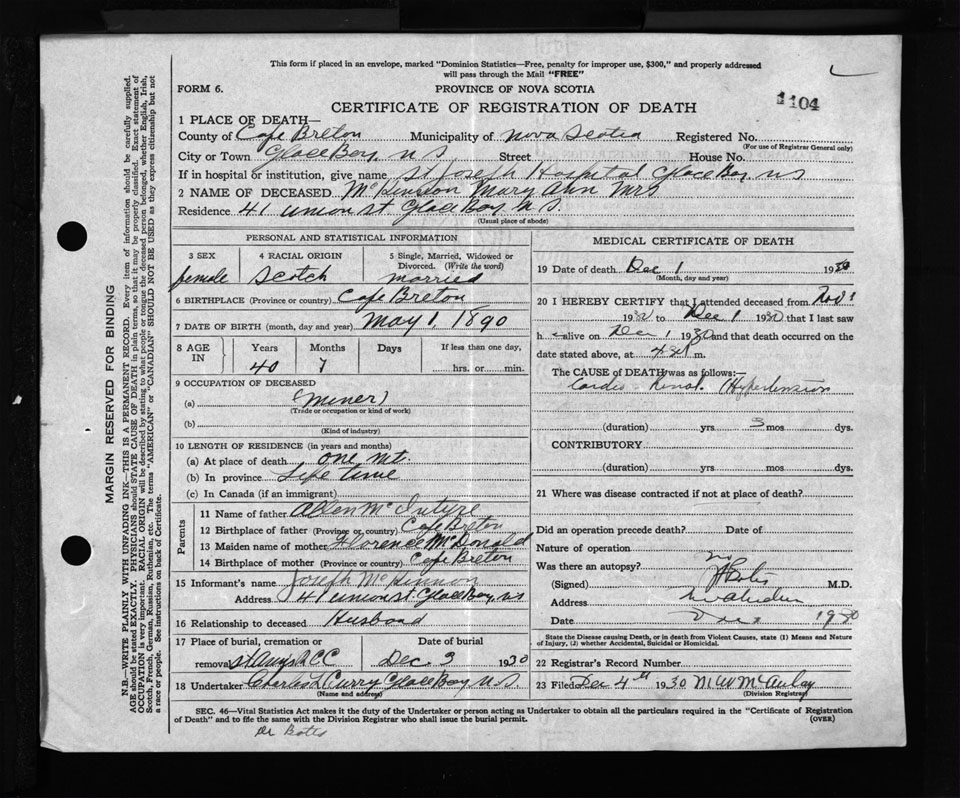 This form if placed in an envelope, marked "Dominion Statistics—Free, penalty for improper use, $300," and properly addressed
will pass through the Mail "FREE"
FORM 6.
PROVINCE OF NOVA SCOTIA
1104
CERTIFICATE OF REGISTRATION OF DEATH
1 PLACE OF DEATH—
County of Cape Breton Municipality of Nova Scotia Registered No.
(For use of Registrar General only)
City or Town Glace Bay, N S Street House No.
If in hospital or institution, give name St Joseph Hospital Glace Bay NS
2 NAME OF DECEASED McKinnon Mary Ann Mrs
Residence 41 Union St Glace Bay N.S.
(Usual place of abode)
MARGIN RESERVED FOR BINDING
N.B.—WRITE PLAINLY WITH UNFADING INK—THIS IS A PERMANENT RECORD. Every item of information should be carefully supplied.
AGE should be stated EXACTLY. PHYSICIANS should STATE CAUSE OF DEATH in plain terms, so that it may be properly classified. Exact statement of
OCCUPATION is very important. RACIAL ORIGIN will be described by stating to what people or tongue the deceased person belonged, whether English, Irish,
Scotch, French, German, Russian, Ruthenian, etc. The terms "AMERICAN" or "CANADIAN" SHOULD NOT BE USED as they express citizenship but not
a race or people. See instructions on back of Certificate.
PERSONAL AND STATISTICAL INFORMATION
3 SEX
female
4 RACIAL ORIGIN
Scotch
5 Single, Married, Widowed or
Divorced. (Write the word)
married
6 BIRTHPLACE (Province or country) Cape Breton
7 DATE OF BIRTH (month, day and year) May 1, 1890
8 AGE IN
Years Months Days If less than one day,
40 7 hrs. or min.
9 OCCUPATION OF DECEASED
(a) (Miner)
(Trade or occupation or kind of work)
(b)
(Kind of industry)
10 LENGTH OF RESIDENCE (in years and months)
(a) At place of death one mt.
(b) In province Life time
(c) In Canada (if an immigrant)
Parents
11 Name of father Allen McIntyre
12 Birthplace of father (Province or country) Cape Breton
13 Maiden name of mother Florence McDonald
14 Birthplace of mother (Province or country) Cape Breton
15 Informant's name Joseph McKinnon
Address 41 Union St Glace Bay, NS
16 Relationship to deceased Husband
17 Place of burial, cremation or
removal C C
Date of burial
Dec 3 1930
18 Undertaker Charles L Curry Glace Bay N.S
(Name and address)
MEDICAL CERTIFICATE OF DEATH
19 Date of death Dec 1 1930
(Month, day and year)
20 I HEREBY CERTIFY that I attended deceased from Nov 1
1930 to Dec 1 1930 that I last saw
h alive on Dec 1 1930 and that death occurred on the
date stated above, at m.
The CAUSE of DEATH was as follows:—
Cardio-Renal (Hypertension
(duration) yrs 3 mos dys.
CONTRIBUTORY
(duration) yrs. mos. dys.
21 Where was disease contracted if not at place of death?
Did an operation precede death? Date of
Nature of operation
Was there an autopsy? no
(Signed) Bates M.D.
Address
Date 1930
State the Disease causing Death, or in death from Violent Causes, state (1) Means and Nature
of Injury, (2) whether Accidental, Suicidal or Homicidal.
22 Registrar's Record Number
23 Filed Dec 4th 1930 McAulay
(Division Registrar)
SEC. 46—Vital Statistics Act makes it the duty of the Undertaker or person acting as Undertaker to obtain all the particulars required in the "Certificate of Registration
of Death" and to file the same with the Division Registrar who shall issue the burial permit.
(OVER)
Dr Bates